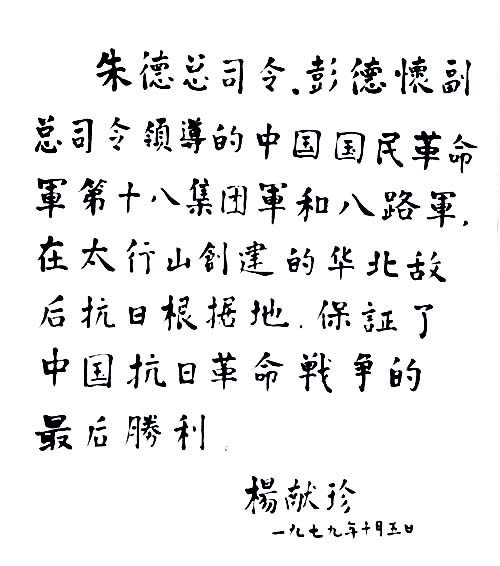 朱德总司令、彭德懷副
总司令領導的中国国民革命
軍第十八集团軍和八路軍,
在太行山創建的华北敌
后抗日根据地.保証了
中国抗日革命戰争的
最后勝利.
楊献珍
一九七九年十月五日